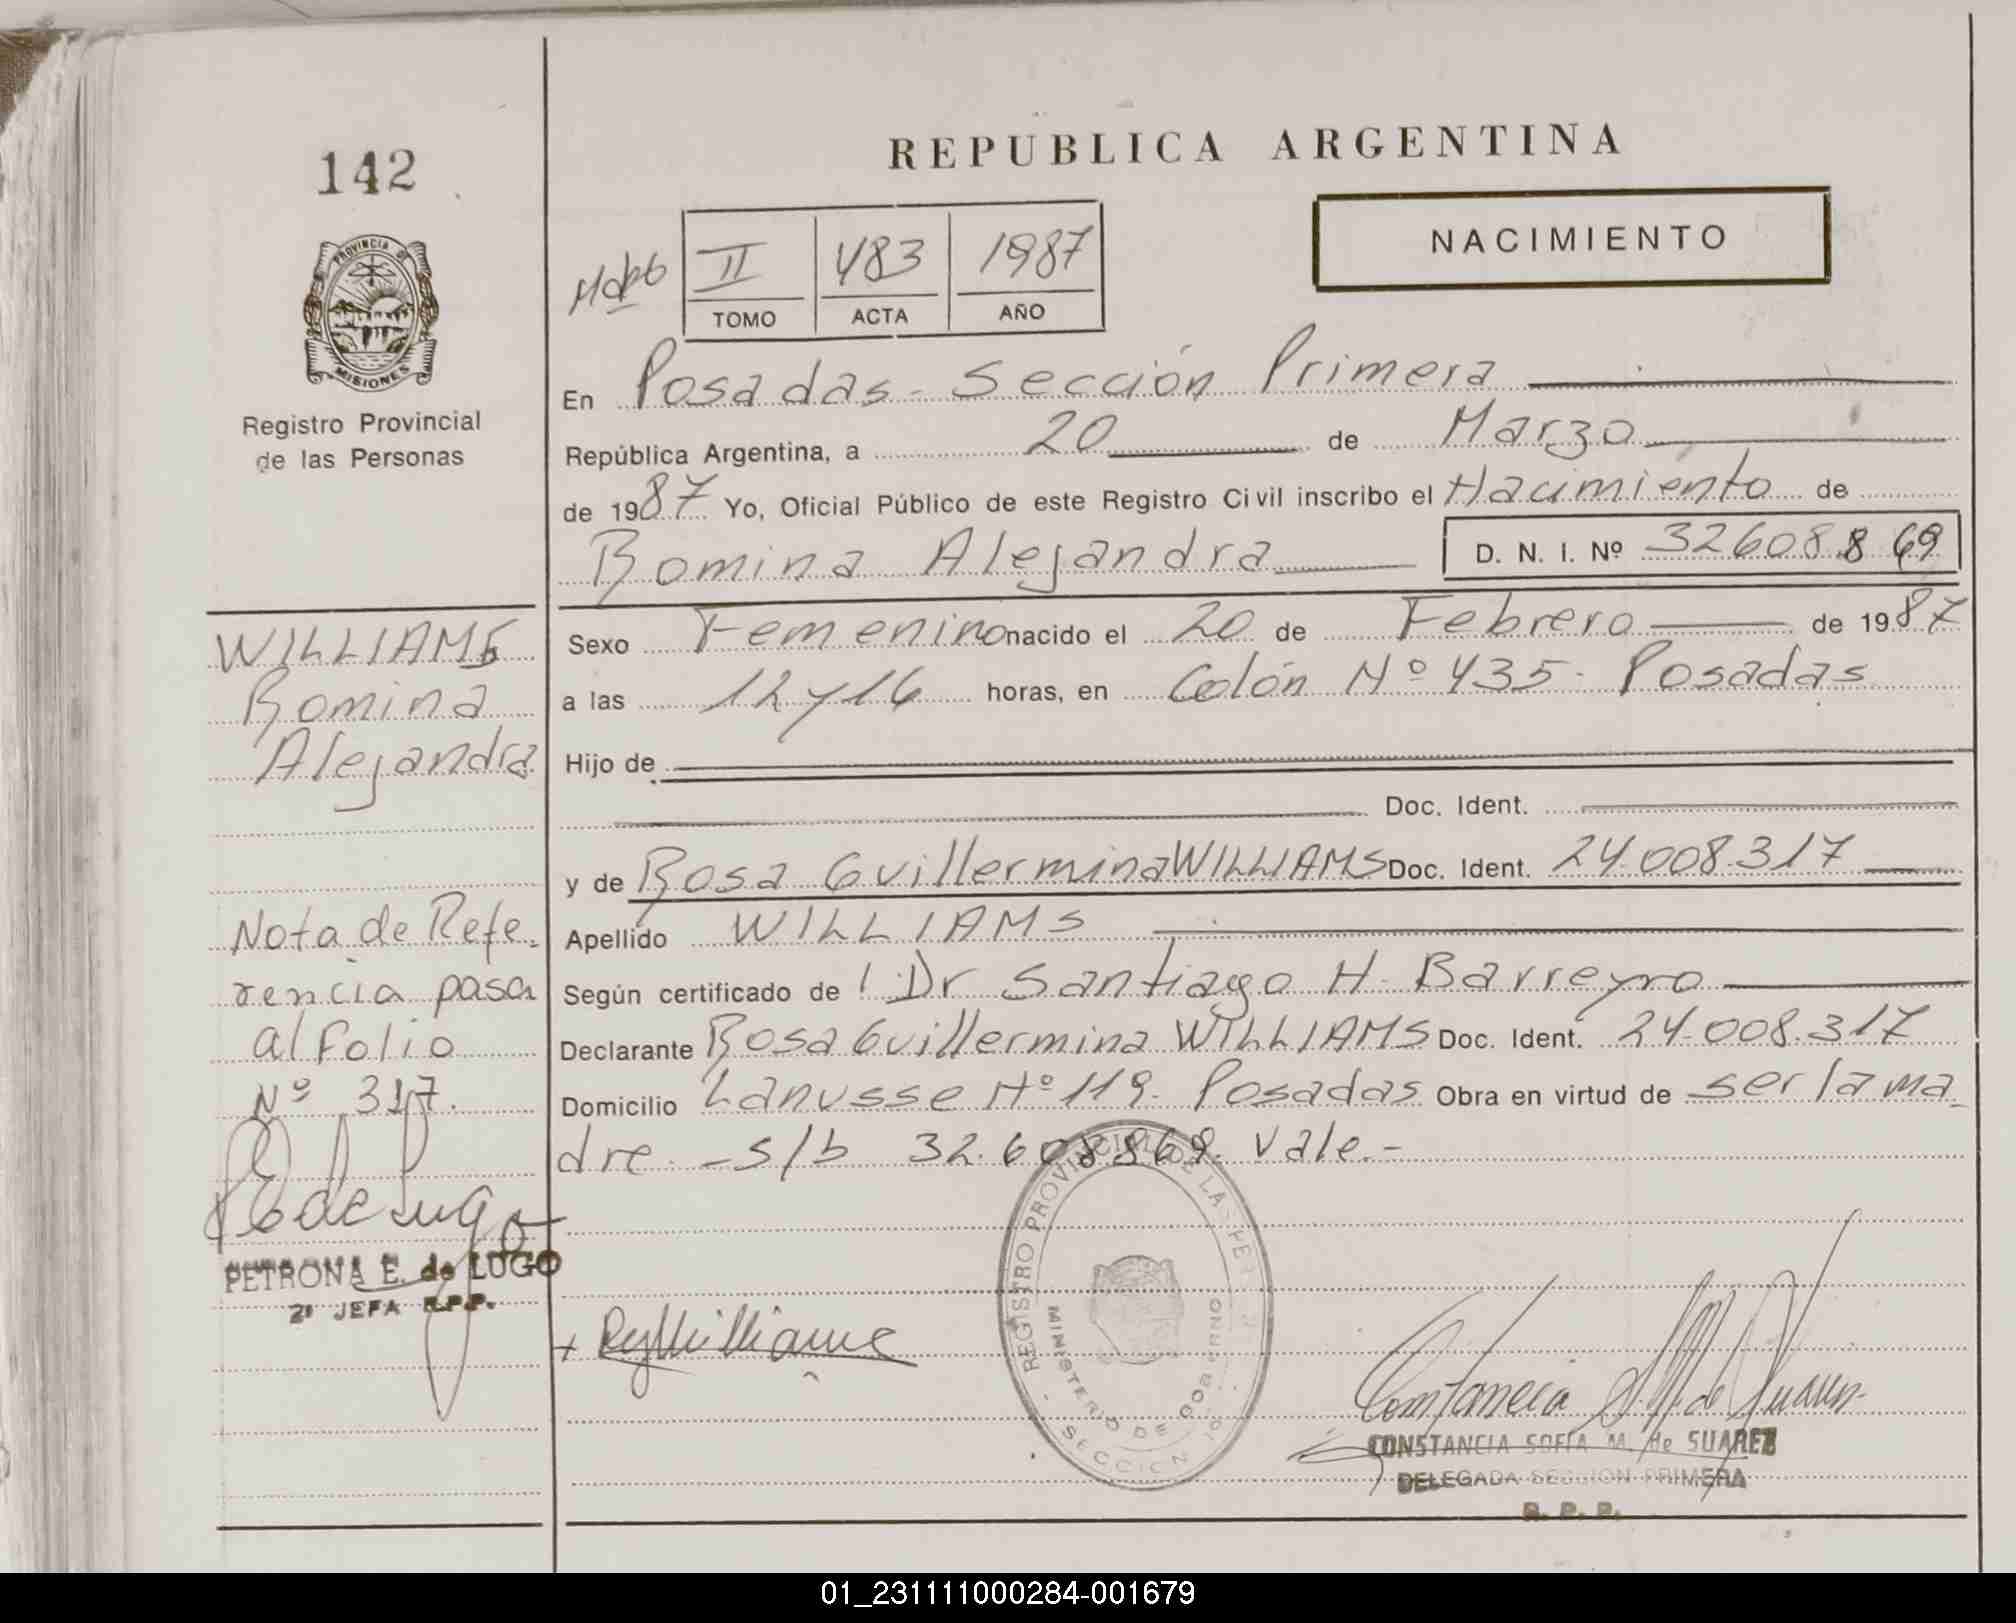 142
REPUBLICA ARGENTINA
NACIMIENTO
II 483 1987
TOMO ACTA AÑO
PROVINCIA DE
MISIONES
Registro Provincial
de las Personas
En Posadas - Sección Primera
República Argentina, a 20 de Marzo
de 1987 Yo, Oficial Público de este Registro Civil inscribo el Nacimiento de
Romina Alejandra D. N. I. Nº 32608869
WILLIAMS
Romina
Alejandra
Sexo Femenino nacido el 20 de Febrero de 1987
a las 12 y 16 horas, en Colón Nº 435 - Posadas
Hijo de
Doc. Ident.
y de Rosa Guillermina WILLIAMS Doc. Ident. 24.008.317
Apellido WILLIAMS
Según certificado de Dr Santiago H. Barreyro
Declarante Rosa Guillermina WILLIAMS Doc. Ident. 24.008.317
Domicilio Lanusse Nº 119. Posadas Obra en virtud de ser la ma-
dre. - s/b 32.608869. Vale.-
Nota de Refe-
rencia pasa
al Folio
Nº 317.
E de Lugo
PETRONA E. de LUGO
2ª JEFA R.P.P.
REGISTRO PROVINCIAL DE LAS PER
MINISTERIO DE GOBIERNO
SECCION 1º
Constancia S. M. de Suarez
CONSTANCIA SOFIA M. de SUAREZ
DELEGADA SECCION PRIMERA
R. P. P.
01_231111000284-001679